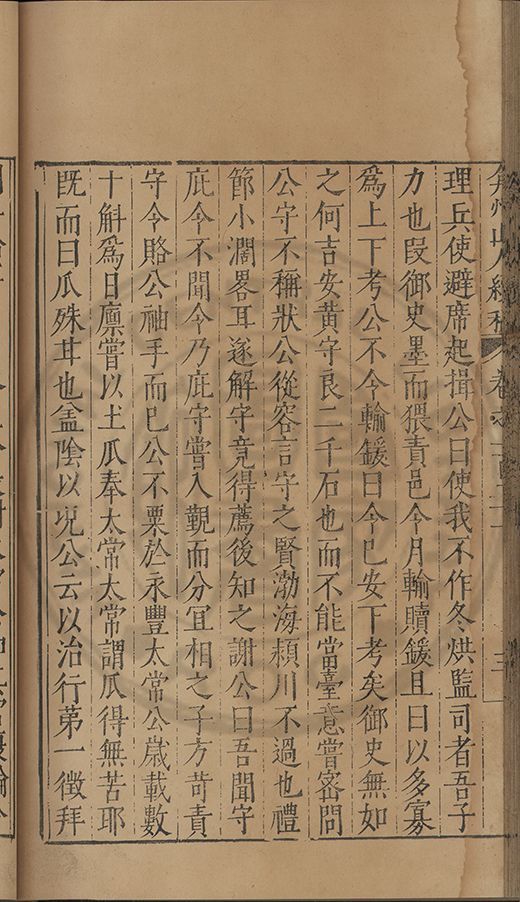 弇州山人續稿 卷之一百二十 三
理兵使避席起揖公曰使我不作冬烘監司者吾子
力也叚御史墨而猥責邑令月輸贖鍰且曰以多寡
爲上下考公不令輸鍰曰令已安下考矣御史無如
之何吉安黄守良二千石也而不能當臺意嘗密問
公守不稱狀公從容言守之賢渤海頴川不過也禮
節小濶畧耳遂解守竟得薦後知之謝公曰吾聞守
庇令不聞令乃庇守嘗入覲而分宜相之子方苛責
守令賂公袖手而已公不粟於永豐太常公嵗載數
十斛爲日廪嘗以土瓜奉太常太常謂瓜得無苦耶
既而曰瓜殊甘也盖陰以况公云以治行第一徵拜